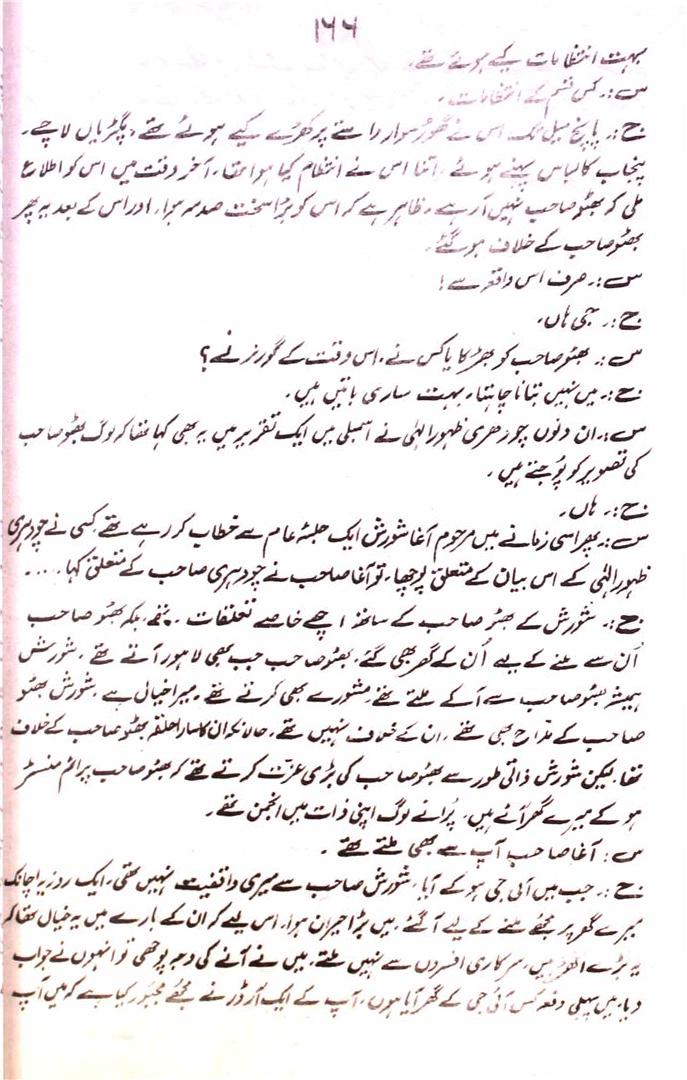 ۱۶۶
بہت انتظامات کیے ہوئے تھے۔
س:۔ کس قسم کے انتظامات۔
ج:۔ پانچ میل تک اس نے گھوڑ سوار راستے پر کھڑے کیے ہوئے تھے، پگڑیاں لاچے۔
پنجاب کا لباس پہنے ہوئے، اتنا اس نے انتظام کیا ہوا تھا، آخر وقت میں اس کو اطلاع
ملی کہ بھٹو صاحب نہیں آ رہے۔ ظاہر ہے کہ اس کو بڑا سخت صدمہ ہوا، اور اس کے بعد یہ پھر
بھٹو صاحب کے خلاف ہو گئے۔
س:۔ صرف اس واقعہ سے!
ج:۔ جی ہاں۔
س:۔ بھٹو صاحب کو بھڑکایا کس نے، اس وقت کے گورنر نے؟
ج:۔ میں نہیں بتانا چاہتا، بہت ساری باتیں ہیں۔
س:۔ ان دنوں چودھری ظہور الہٰی نے اسمبلی میں ایک تقریر میں یہ بھی کہا تھا کہ لوگ بھٹو صاحب
کی تصویر کو پوجتے ہیں۔
ج:۔ ہاں۔
س:۔ پھر اسی زمانے میں مرحوم آغا شورش ایک جلسۂ عام سے خطاب کر رہے تھے، کسی نے چودہری
ظہور الہٰی کے اس بیان کے متعلق پوچھا، تو آغا صاحب نے چودہری صاحب کے متعلق کہا.....۔
ج:۔ شورش کے بھٹو صاحب کے ساتھ اچھے خاصے تعلقات تھے، بلکہ بھٹو صاحب
اُن سے ملنے کے لیے اُن کے گھر بھی گئے، بھٹو صاحب جب بھی لاہور آتے تھے، شورش
ہمیشہ بھٹو صاحب سے آ کے ملتے تھے، مشورے بھی کرتے تھے۔ میرا خیال ہے، شورش بھٹو
صاحب کے مداح بھی تھے، ان کے خلاف نہیں تھے، حالانکہ ان کا سارا حلقہ بھٹو صاحب کے خلاف
تھا، لیکن شورش ذاتی طور سے بھٹو صاحب کی بڑی عزت کرتے تھے کہ بھٹو صاحب پرائم منسٹر
ہو کے میرے گھر آئے ہیں، پُرانے لوگ اپنی ذات میں انجمن تھے۔
س: آغا صاحب آپ سے بھی ملتے تھے۔
ج:۔ جب میں آئی جی ہو کے آیا، شورش صاحب سے میری واقفیت نہیں تھی، ایک روز یہ اچانک
میرے گھر پر مجھے ملنے کے لیے آ گئے، میں بڑا حیران ہوا، اس لیے کہ ان کے بارے میں یہ خیال تھا کہ
یہ بڑے اکھڑ ہیں، سرکاری افسروں سے نہیں ملتے، میں نے آنے کی وجہ پوچھی تو انہوں نے جواب
دیا، میں پہلی دفعہ کسی آئی جی کے گھر آیا ہوں، آپ کے ایک آرڈر نے مجھے مجبور کیا ہے کہ میں آپ